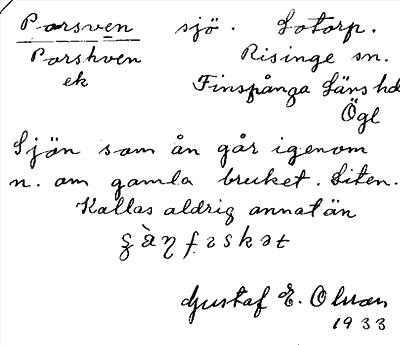 Porsven sjö. Sotorp.
Porshven Risinge sn.
ek Finspånga Läns hd
Ögl
Sjön som ån går igenom
n. om gamla bruket. Liten.
Kallas aldrig annat än
Gustaf E. Olson
1933